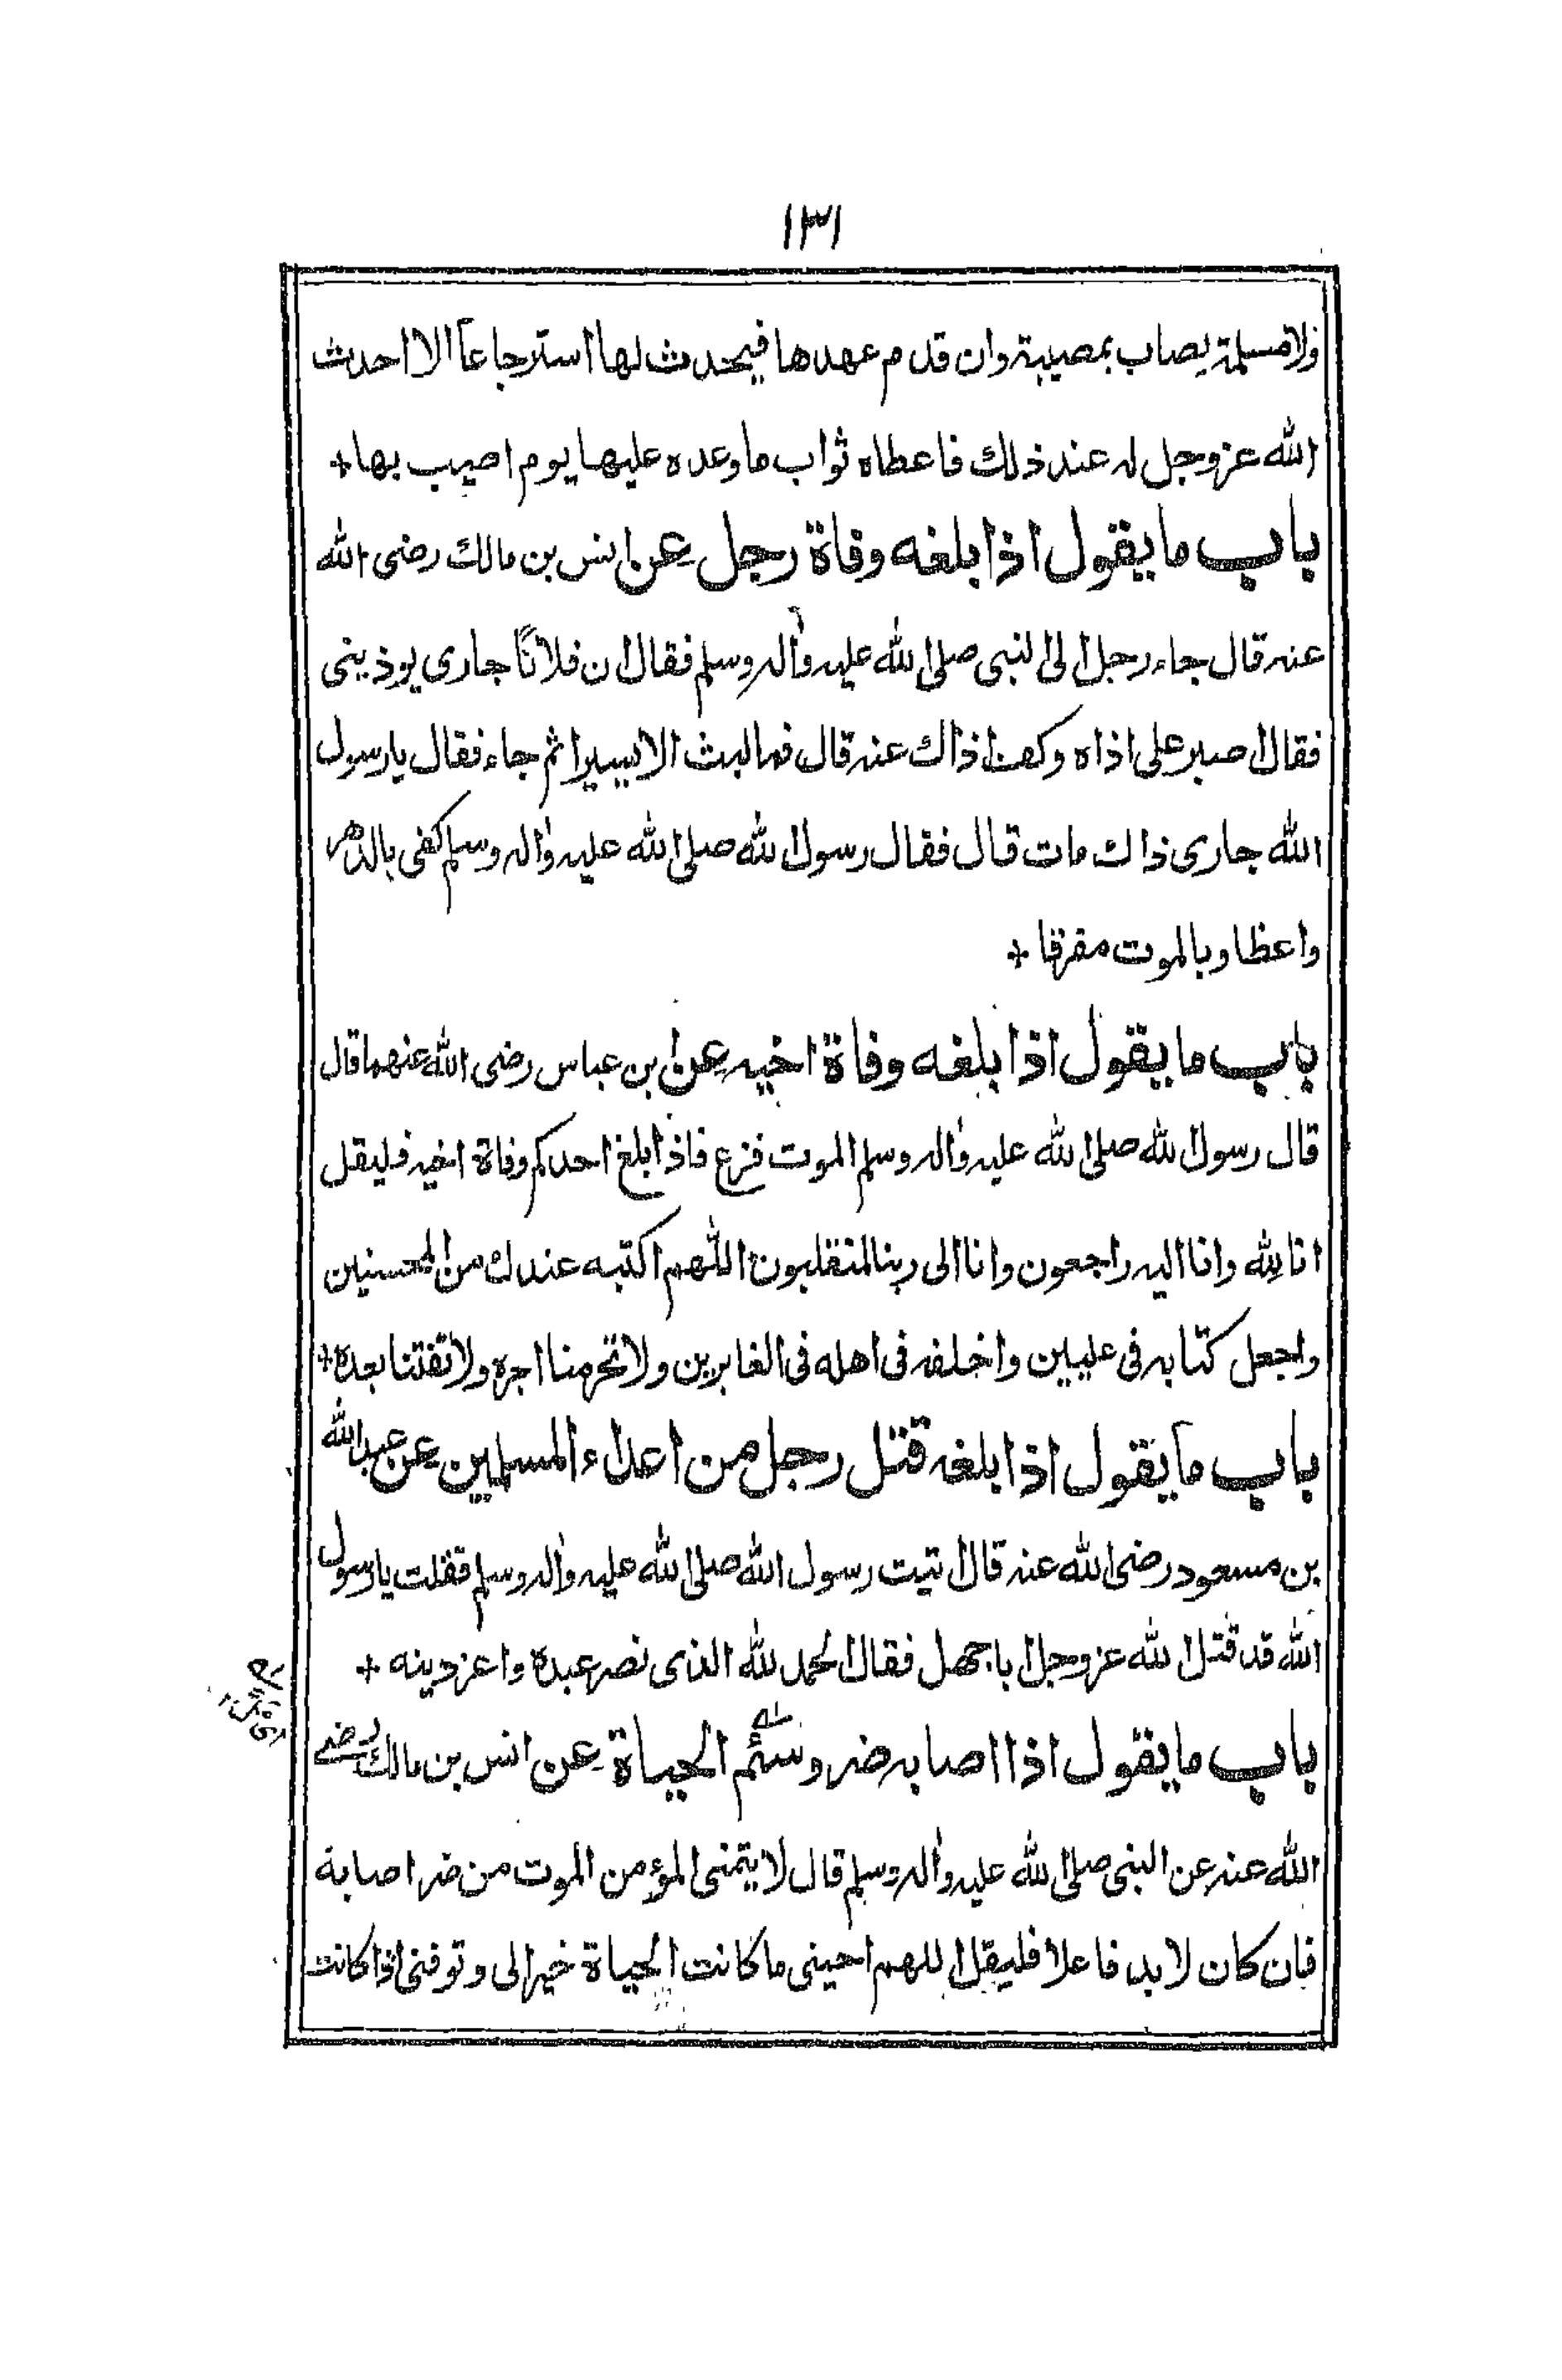 ١٣١
ولا مسلمة يصاب بمصيبة وان قدم عهدها فيحدث لها استرجاعاً الا احدث
الله عزوجل له عند ذلك فاعطاه ثواب ما وعده عليها يوم اصيب بها +
باب ما يقول اذا بلغه وفاة رجل عن انس بن مالك رضى الله
عنه قال جاء رجل الى النبى صلى الله عليه واله وسلم فقال ان فلاناً جارى يوذينى
فقال اصبر على اذاه وكف اذاك عنه قال فما لبث الا يسيرا ثم جاء فقال يا رسول
الله جارى ذاك مات قال فقال رسول الله صلى الله عليه واله وسلم كفى بالدهر
واعظا وبالموت مفرقا +
باب ما يقول اذا بلغه وفاة اخيه عن ابن عباس رضى الله عنهما قال
قال رسول الله صلى الله عليه واله وسلم الموت فزع فاذا بلغ احدكم وفاة اخيه فليقل
انا لله وانا اليه راجعون وانا الى ربنا لمنقلبون اللهم اكتبه عندك من المحسنين
واجعل كتابه فى عليين واخلفه فى اهله فى الغابرين ولا تحرمنا اجره ولا تفتنا بعده +
باب ما يقول اذا بلغه قتل رجل من اعداء المسلمين عن عبد الله
بن مسعود رضى الله عنه قال اتيت رسول الله صلى الله عليه واله وسلم فقلت يا رسول
الله قد قتل الله عزوجل ابا جهل فقال الحمد لله الذى نصر عبده واعز دينه +
باب ما يقول اذا اصابه ضر وسئم الحياة عن انس بن مالك رضى
الله عنه عن النبى صلى الله عليه واله وسلم قال لا يتمنى المؤمن الموت من ضر اصابة
فان كان لا بد فاعلا فليقل اللهم احينى ما كانت الحياة خيرا لى وتوفنى اذا كانت